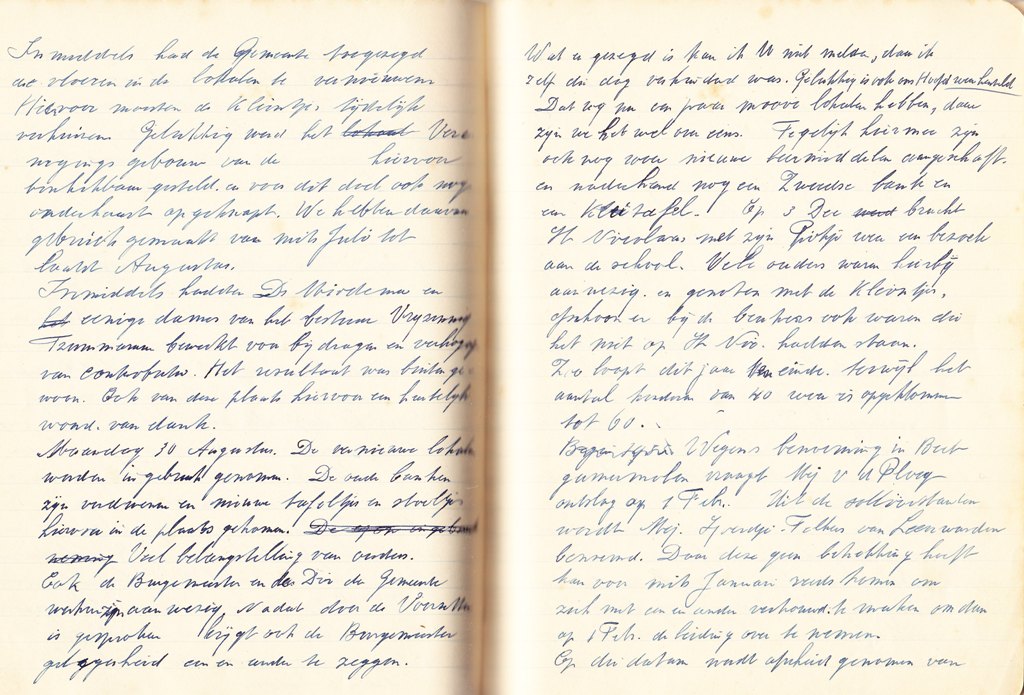 Inmiddels had de Gemeente toegezegd
de vloeren in de lokalen te vernieuwen
Hiervoor moesten de Kleintjes tijdelijk
verhuizen. Gelukkig werd het lokaal Vere
nigings gebouw van de hiervoor
beschikbaar gesteld. en voor dit doel ook nog
onderhands opgeknapt. We hebben daarvan
gebruik gemaakt van mits Juli tot
laatst Augustus.
Inmiddels hadden Ds en
het eenige dames van het bestuur
Tzummarum bewerkt voor bijdragen en verhoging
van contributie. Het resultaat was buiten ge
woon. Ook van deze plaats hiervoor een hartelijk
woord van dank.
Maandag 30 Augustus. De vernieuwde lokalen
worden in gebruik genomen. De oude banken
zijn verdwenen en nieuwe tafeltjes en stoeltjes
hiervoor in de plaats gekomen. De
Veel belangstelling van ouders.
Ook de Burgemeester en de Dir der Gemeente
werken zijn aanwezig, Nadat door de Voorzitter
is gesproken krijgt ook de Burgemeester
gelegenheid een en ander te zeggen.
Wat er gezegd is kan ik U niet melden, daar ik
zelf die dag verhinderd was. Gelukkig is ook ons Hoofd weer hersteld
Dat wij nu een paar mooie lokalen hebben, daar
zijn we het wel over eens. Tegelijk hiermee zijn
ook nog weer nieuwe leermiddelen aangeschaft.
en naderhand nog een Zweedse bank en
een Kleitafel. Op 3 Dec werd bracht
St Nicolaas met zijn Pietje weer een bezoek
aan de school. Vele ouders waren hierbij
aanwezig. en genoten met de Kleintjes,
ofschoon er bij de kenkers ook waren die
het niet op St Nic. hadden staan.
Zoo loopt dit jaar ten einde. terwijl het
aantal kinderen van 40 weer is opgeklommen
tot 60.
Wegens benoeming in Beet
gumermolen vraagt Mej v d Ploeg
ontslag op 1 Febr. Uit de sollicitanten
wordt Mej. Feikes van Leeuwarden
benoemd. Daar deze geen betrekking heeft
kan voor mits Januari reeds komen om
zich met een en ander vertrouwd te maken om dan
op 1 Febr. de leiding over te nemen.
Op die datum wordt afscheid genomen van